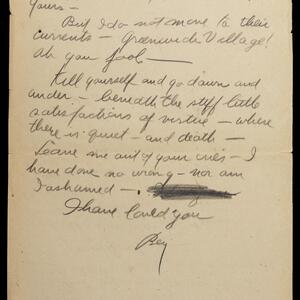 yours —
But I do not move to their
currents — Greenwich Village!
Ah you fool —
Kill yourself and go down and
under — beneath the stiff little
satisfactions of virtue — where
there is quiet — and death —
Leave me out of your cries — I
have done no wrong — nor am
I ashamed —
I have loved you